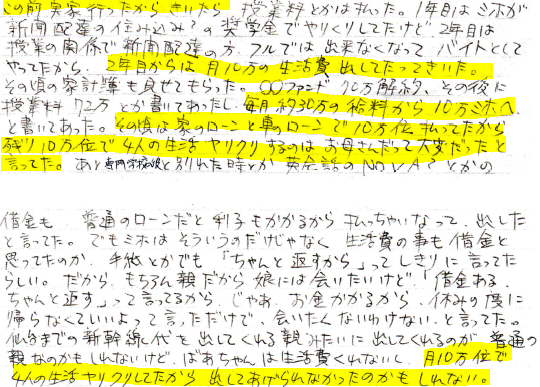 この前実家行ったからきいたら 授業料とかは払った。1年目はミホが
新聞配達の住み込み?の奨学金でやりくりしてたけど 2年目は
授業の関係で新聞配達の方、フルでは出来なくなって バイトとして
やってたから、2年目からは月10万の生活費出してたってきいた。
その頃の家計簿も見せてもらった。○○ファンド 70万解約、その後に
授業料 72万 とか書いてあったし、毎月約30万の給料から10万ミホへ
と書いてあった。その頃は家のローンと車のローンで10万位払ってたから
残り10万位で4人の生活ヤリクリするのはお母さんだって大変だったと
言ってた。あと専門学校の彼と別れた時とか 英会話のNOVA?とかの
借金も 普通のローンだと利子もかかるから払っちゃいなって、出した
と言ってた。でもミホは そういうのだけじゃなく 生活費の事も借金と
思ってたのか 手紙とかでも「ちゃんと返すから」ってしきりに言ってた
らしい。だから、もちろん親だから娘には会いたいけど「借金ある、
ちゃんと返す」って言ってるから、じゃあ お金かかるから、休みの度に
帰らなくていいよって言っただけで、会いたくないわけない、と言ってた。
仙台までの新幹線代とを出してくれる親みたいに出してくれるのが普通の
親なのかもしれないけど、ばあちゃんは生活費くれないし、月10万位で
4人の生活ヤリクリしてたから 出してあげられなかったのかもしれない。